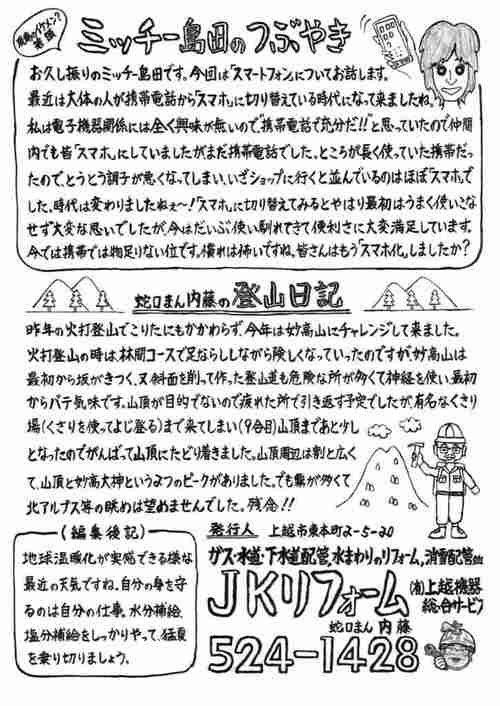 ミッチー島田のつぶやき
お久し振りのミッチー島田です。今回は「スマートフォン」についてお話します。
最近は大体の人が携帯電話から「スマホ」に切り替えている時代になって来ましたね。
私は電子機器関係には全く興味が無いので"携帯電話で充分だ!!"と思っていたので仲間
内でも皆「スマホ」にしていましたがまだ携帯電話でした。ところが長く使っていた携帯だっ
たので、とうとう調子が悪くなってしまい、いざショップに行くと並んでいるのはほぼ「スマホ」で
した。時代は変わりましたねぇ～!「スマホ」に切り替えてみるとやはり最初はうまく使いこな
せず大変な思いでしたが、今はだいぶ使い馴れてきて便利さに大変満足しています。
今では携帯では物足りない位です。慣れは怖いですね。皆さんはもう「スマホ化」しましたか?
蛇口まん内藤の登山日記
昨年の火打登山でこりたにもかかわらず、今年は妙高山にチャレンジして来ました。
火打登山の時は、林間コースで足ならしながら険しくなっていったのですが、妙高山は
最初から坂がきつく、又、斜面を削って作った登山道も危険な所が多くて神経を使い、最初
からバテ気味です。山頂が目的でないので疲れた所で引き返す予定でしたが、有名なくさり
場(くさりを使ってよじ登る)まで来てしまい(9合目)山頂まであと少し
となったのでがんばって山頂にたどり着きました。山頂周辺は割と広く
て、山頂と妙高大神という2つのピークがありました。でも霧が多くて
北アルプス等の眺めは望めませんでした。残念!!
(編集後記)
地球温暖化が実感できる様な
最近の天気ですね。自分の身を守
るのは自分の仕事。水分補給、
塩分補給をしっかりやって、猛夏
を乗り切りましょう。
発行人 上越市東本町2-5-20
ガス・水道・下水道配管、水まわりのリフォーム、消雪配管
JKリフォーム
(有)上越機器
総合サービス
蛇口まん 内藤
524-1428